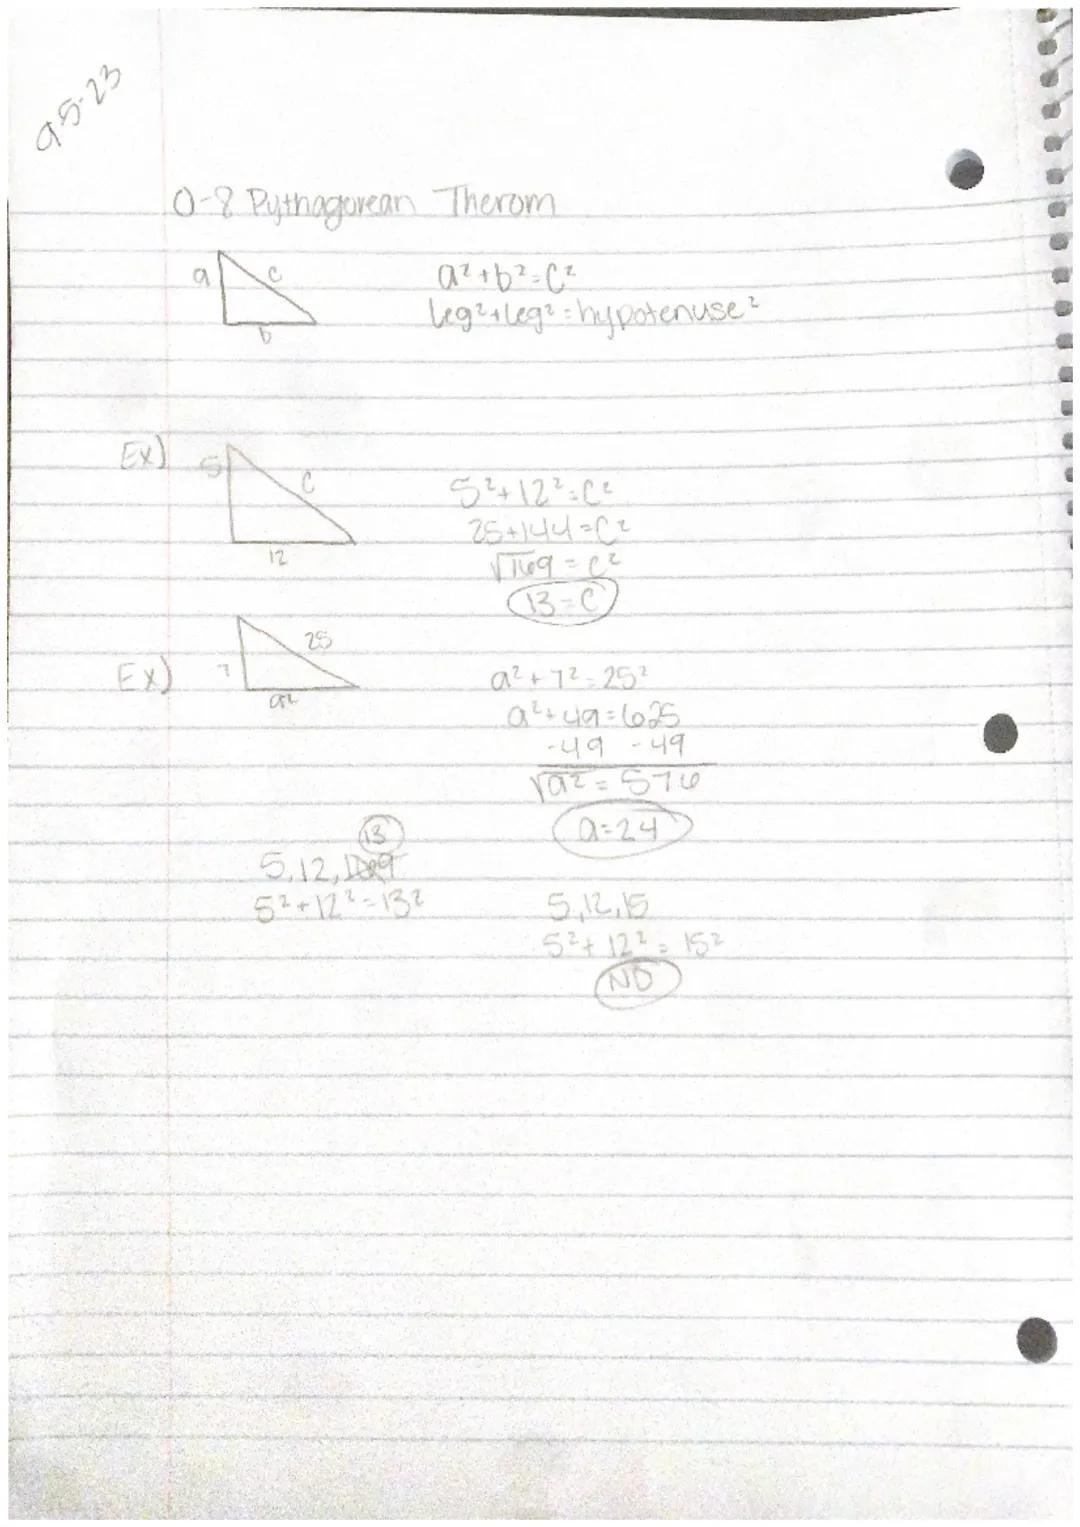 95-23
0-8 Pythagorean Therom
a c b
a²+b²=c²
leg²+leg²=hypotenuse²
Ex)
5 c 12
5²+12²=c²
25+144=c²
√169=c²
13=c
Ex)
7 25 a²
a²+7²=25²
a²+49=625
-49 -49
√a²=576
a=24
13
5,12,169
5²+12²=13²
5,12,15
5²+12²=15²
NO